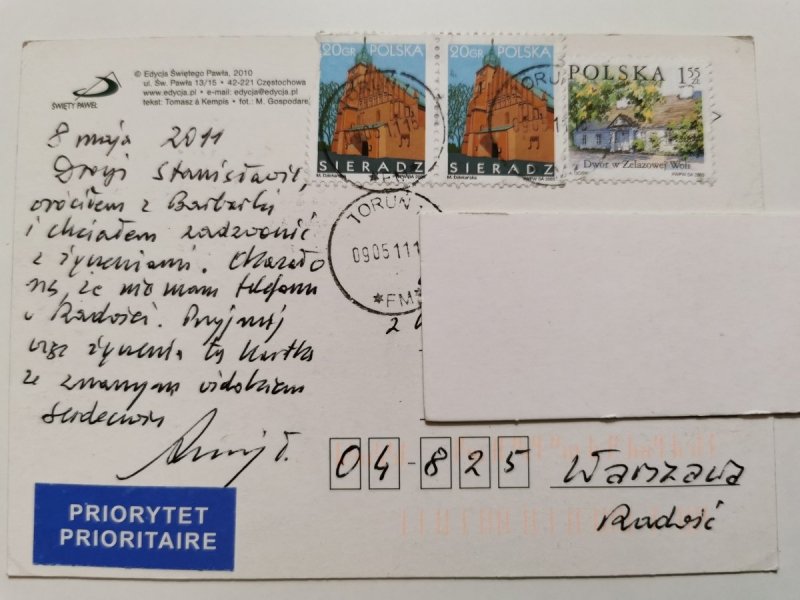 © Edycja Świętego Pawła, 2010
ul. Św. Pawła 13/15 • 42-221 Częstochowa
www.edycja.pl • e-mail: edycja@edycja.pl
tekst: Tomasz à Kempis • fot.: M. Gospodarek
ŚWIĘTY PAWEŁ
20GR POLSKA
SIERADZ
20GR POLSKA
SIERADZ
POLSKA 1,55 ZŁ
Dwór w Żelazowej Woli
TORUŃ
090511
*FM*
8 maja 2011
Drogi Stanisławie,
wróciłem z Barbarki
i chciałem zadzwonić
z życzeniami. Okazało
się, że nie mam telefonu
w Radości. Przyjmij
więc życzenia tą kartką
ze znanym widokiem
serdecznie
04-825 Warszawa
Radość
PRIORYTET
PRIORITAIRE